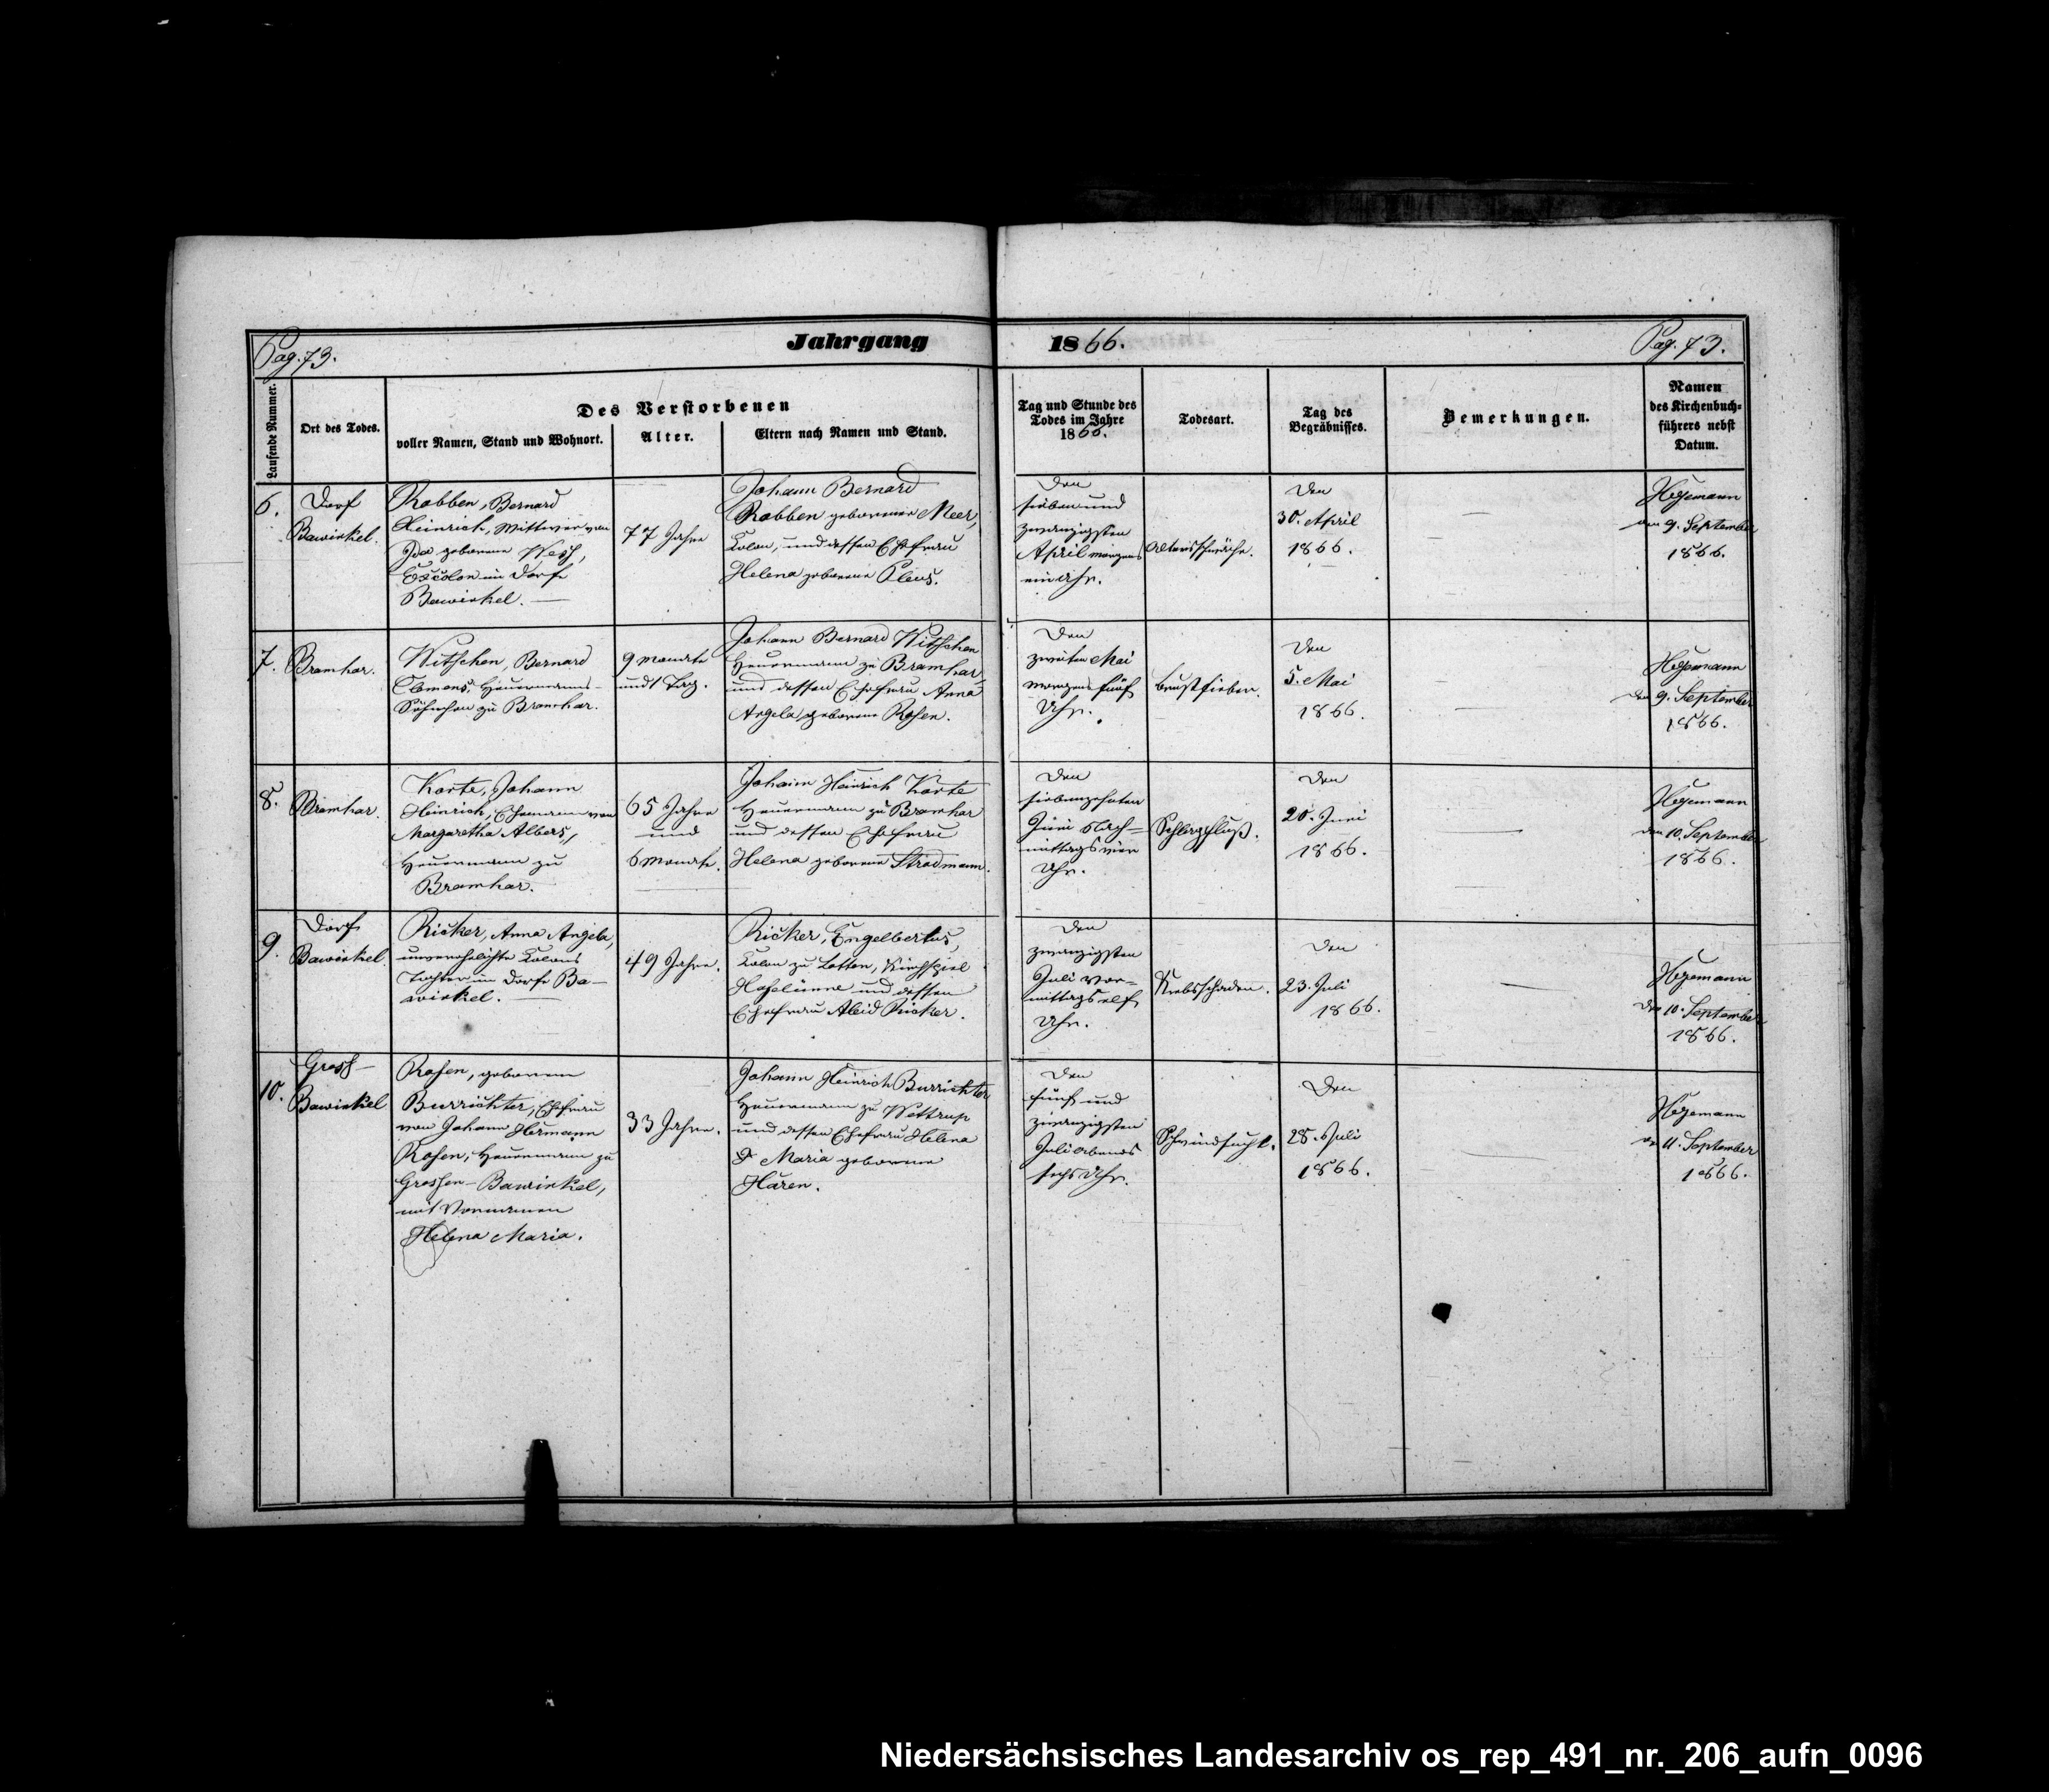 Pag. 73.
Jahrgang 1866.
Pag. 73.
Laufende Nummer.
Ort des Todes.
Des Verstorbenen
voller Namen, Stand und Wohnort.
Alter.
Eltern nach Namen und Stand.
Tag und Stunde des
Todes im Jahre
1866.
Todesart.
Tag des
Begräbnisses.
Bemerkungen.
Namen
des Kirchenbuch-
führers nebst
Datum.
6.
Dorf
Bawinkel.
Robben, Bernard
Heinrich, Wittwer von
Ida geborene
Excolon im Dorfe
Bawinkel.
77 Jahre
Johann Bernard
Robben geborener Meer,
Colon, und dessen Ehefrau
Helena geborene Pleus.
Den
sieben und
zwanzigsten
April morgens
ein Uhr.
Altersschwäche.
Den
30. April
1866.
Hegemann
den 9. September
1866.
7.
Bramhar.
Witschen, Bernard
Clemens, Heuermanns-
Söhnchen zu Bramhar.
9 Monate
und 1 Tag.
Johann Bernard Witschen
Heuermann zu Bramhar
und dessen Ehefrau Anna
Angela geborene Rosen.
Den
zweiten Mai
morgens fünf
Uhr.
Brustfieber.
Den
5. Mai
1866.
Hegemann
den 9. September
1866.
8.
Bramhar.
Korte, Johann
Heinrich, Ehemann von
Margaretha Albers,
Heuermann zu
Bramhar.
65 Jahre
und
6 Monate.
Johann Heinrich Korte
Heuermann zu Bramhar
und dessen Ehefrau
Helena geborene Strodmann.
Den
siebenzehnten
Juni Nach-
mittags vier
Uhr.
Schlagfluß.
Den
20. Juni
1866.
Hegemann
den 10. September
1866.
9.
Dorf
Bawinkel.
Ricker, Anna Angela,
unverehelichte Colons
Tochter im Dorfe Ba-
winkel.
49 Jahre.
Ricker, Engelbertus,
Colon zu Lotten, Kirchspiel
Haselünne und dessen
Ehefrau Aleid Ricker.
Den
zwanzigsten
Juli Vor-
mittags elf
Uhr.
Krebsschaden.
Den
23. Juli
1866.
Hegemann
den 10. September
1866.
10.
Gross-
Bawinkel
Rosen, geborene
Burrichter, Ehefrau
von Johann Hermann
Rosen, Heuermann zu
Grossen-Bawinkel,
mit Vornamen
Helena Maria.
33 Jahre.
Johann Heinrich Burrichter
Heuermann zu Wettrup
und dessen Ehefrau Helena
Maria geborene
Haren.
Den
fünf und
zwanzigsten
Juli abends
sechs Uhr.
Schwindsucht.
Den
28. Juli
1866.
Hegemann
den 11. September
1866.
Niedersächsisches Landesarchiv os_rep_491_nr._206_aufn_0096